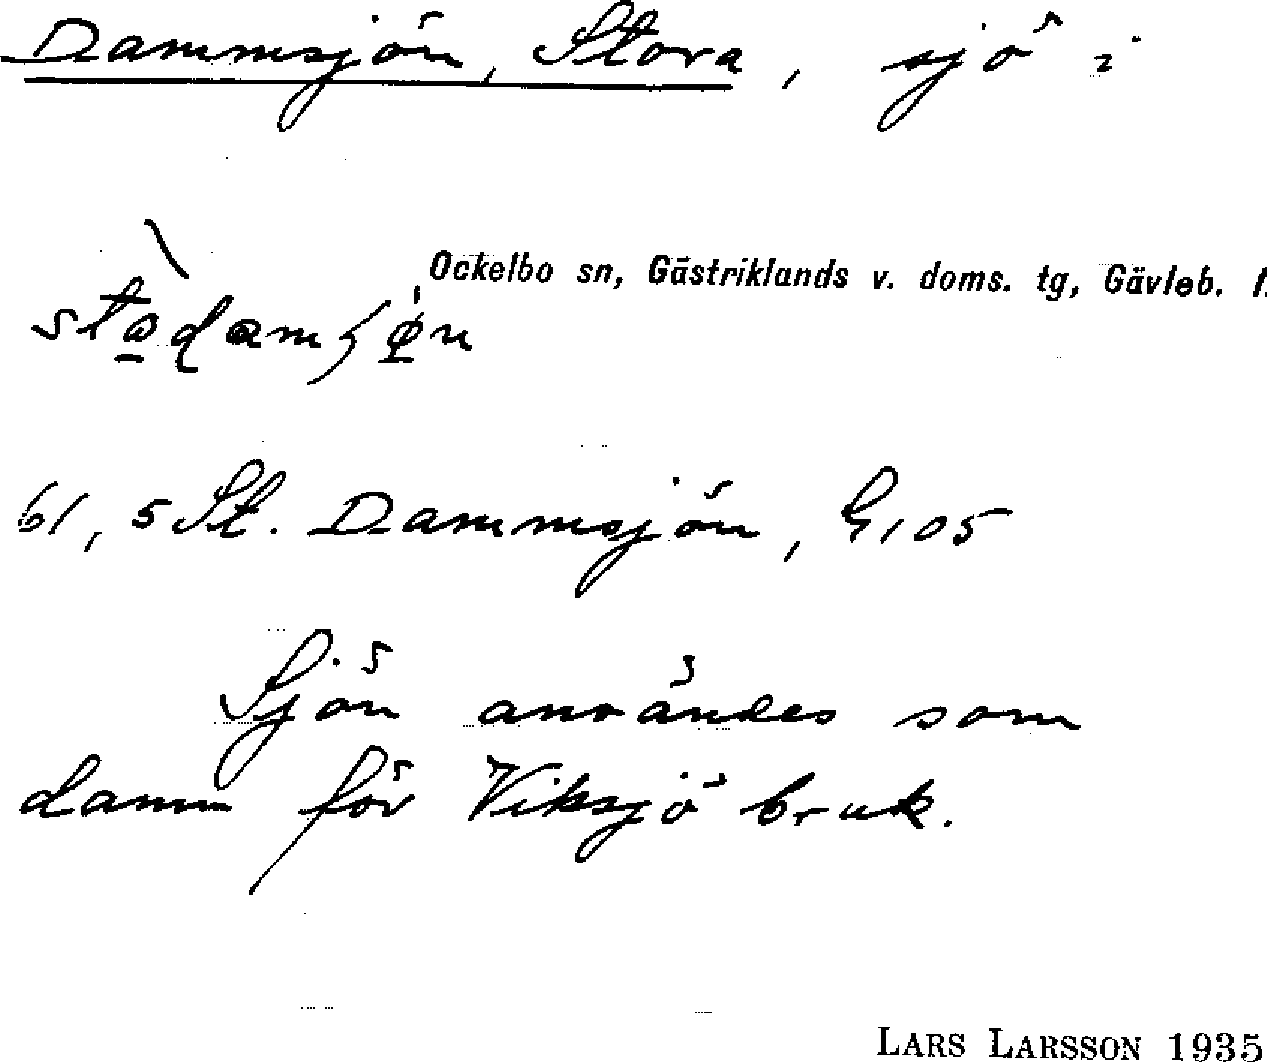 Dammsjön, Stora, sjö i
Ockelbo sn, Gästriklands v. doms. tg, Gävleb. l.
61, 5 St. Dammsjön, G105
Sjön användes som
damm för Viksjö bruk.
LARS LARSSON 1935